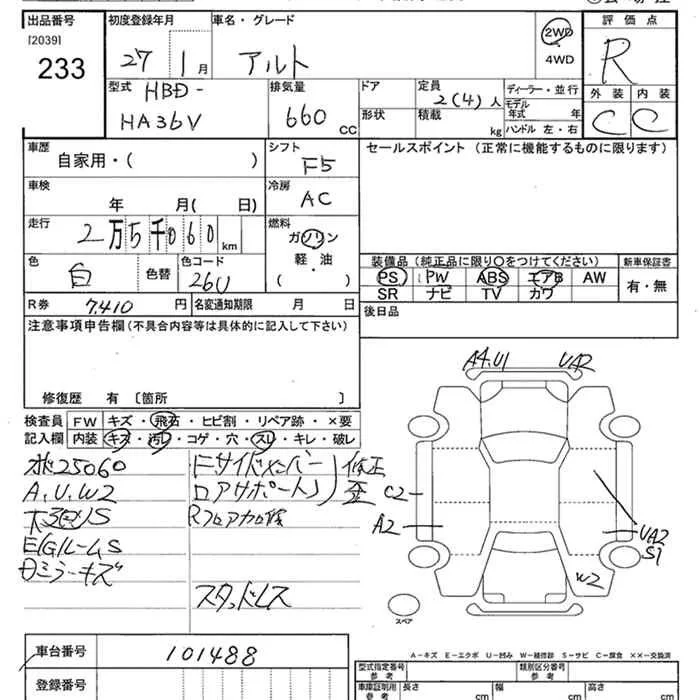 出品番号 初度登録年月 車名・グレード 評価点
[2039] 2WD
233 27 1月 アルト 4WD R
型式 排気量 ドア 定員 ディーラー・並行 外装 内装
HBD- 2(4)人 モデル年式 年
HA36V 660 CC 形状 積載 kg ハンドル 左・右 C C
車歴 シフト セールスポイント(正常に機能するものに限ります)
自家用・( ) F5
車検 冷房
年 月( 日) AC
走行 燃料
2万5千060 km ガソリン
軽・油
( )
色 色替 色コード 装備品(純正品に限り○をつけてください) 新車保証書
白 26U PS PW ABS エアB AW 有・無
SR ナビ TV カワ
R券 7,410 円 名変通知期限 月 日 後日品
注意事項申告欄(不具合内容等は具体的に記入して下さい)
修復歴 有〔箇所 〕
A4.U1 UA2
検査員 FW キズ・飛石・ヒビ割・リペア跡・×要
記入欄 内装 キズ・汚レ・コゲ・穴・スレ・キレ・破レ
オド25060 Fサイドメンバー 修正
A,U,W2 ロアサポート 歪 C2
下S Rフロア A2
E/GルームS UA2
ミラーキズ S1
W2
スタッドレス
スペア
A-キズ E-エクボ U-凹み W-補修跡 S-サビ C-腐食 XX-交換済
車台番号 101488
型式指定番号 参考 類別区分番号 参考
登録番号 車庫証明用 参考 長さ cm 幅 cm 高さ cm